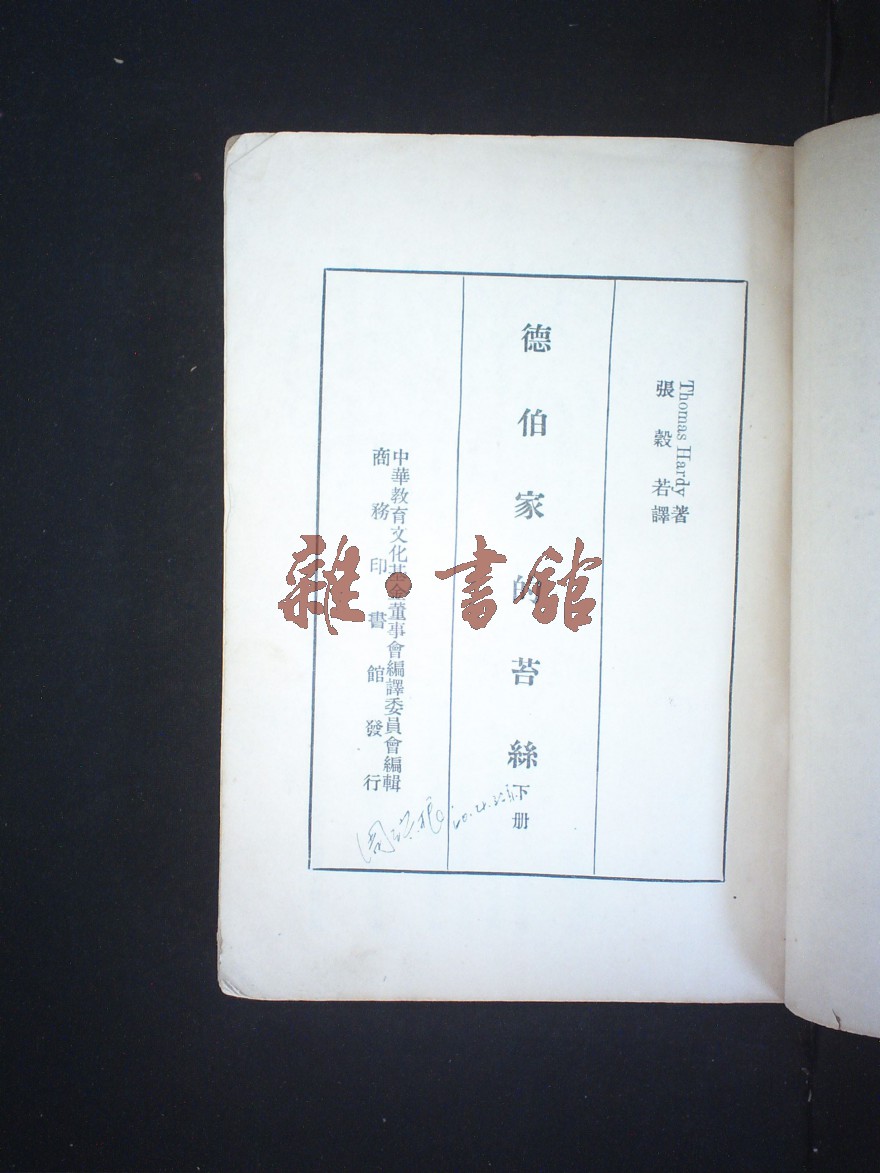 Thomas Hardy著
張穀若譯
德伯家的苔絲下册
中華教育文化基金董事會編譯委員會編輯
商務印書館發行
雜·書館